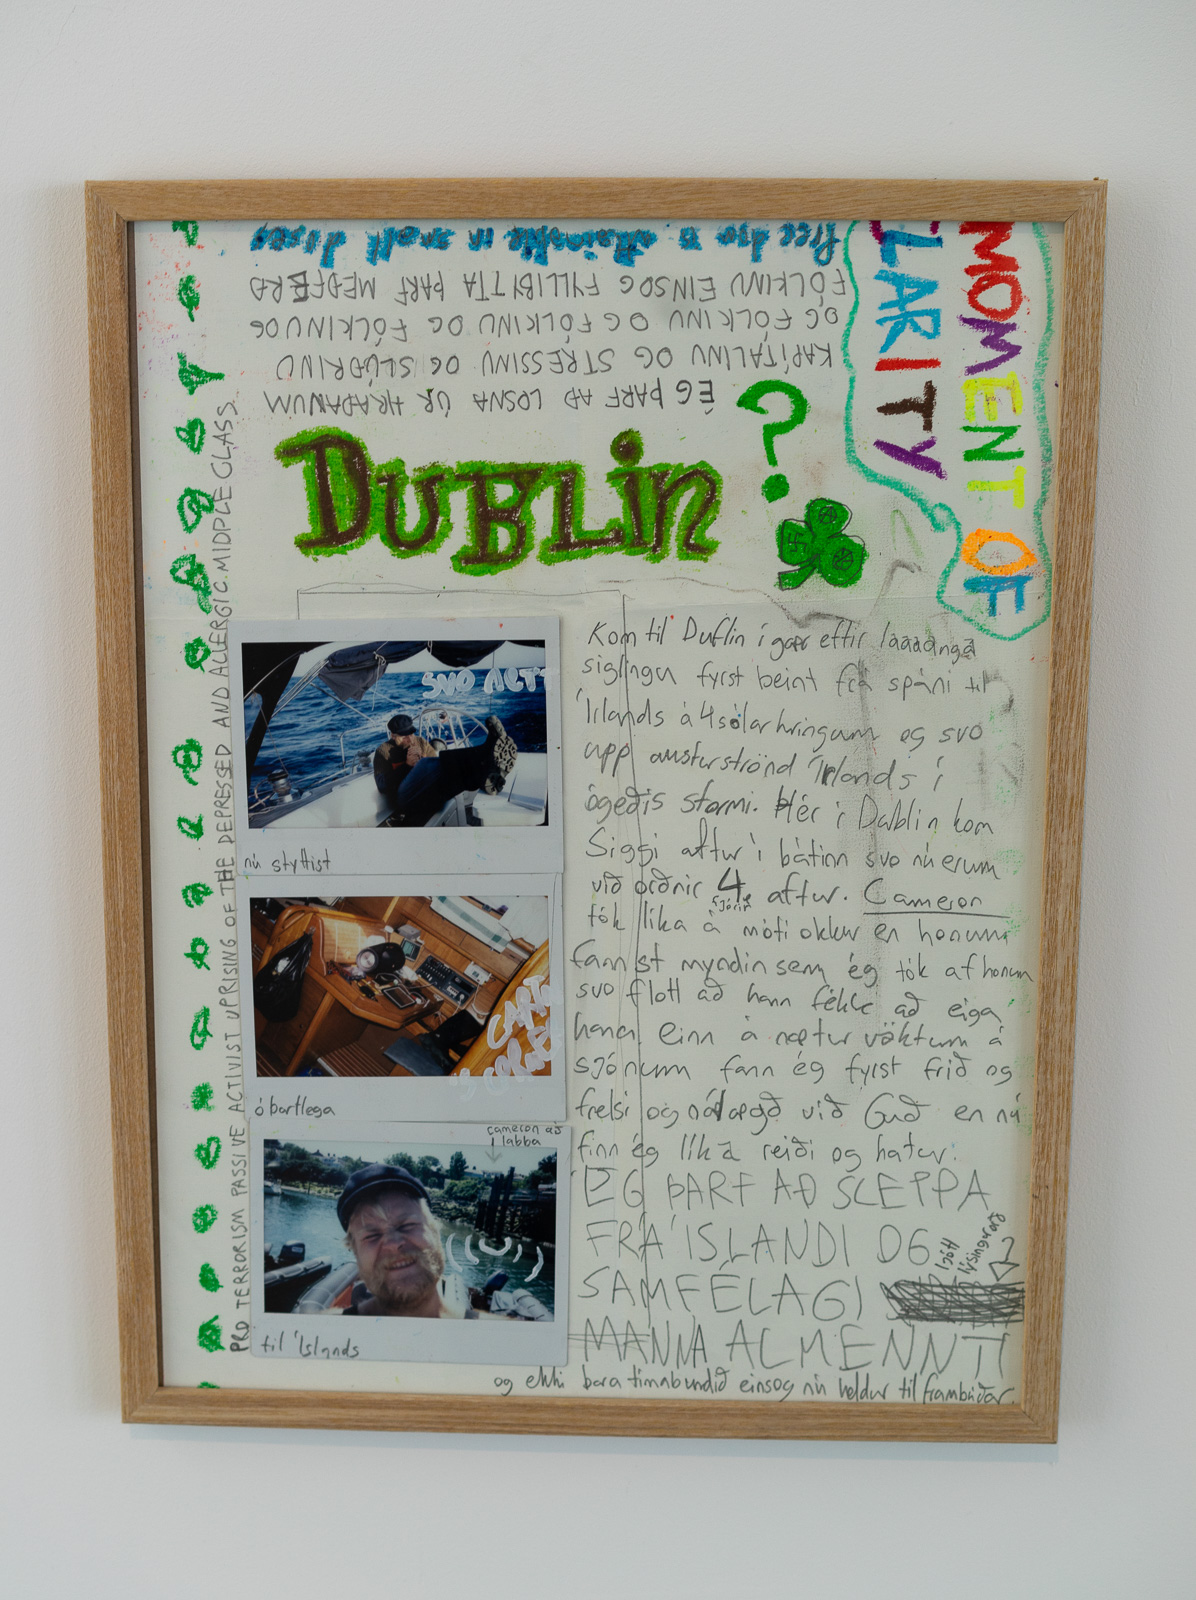 MOMENT OF
CLARITY
freedom is attainable in small doses
ÉG ÞARF AÐ LOSNA ÚR HRAÐANUM
KAPÍTALINU OG STRESSINU OG SLÚÐRINU
OG FÓLKINU OG FÓLKINU OG FÓLKINU OG
FÓLKINU EINSOG FYLLIBYTTA ÞARF MEÐFERÐ
DUBLIN ?
PRO TERRORISM PASSIVE ACTIVIST UPRISING OF THE DEPRESSED AND ALLERGIC MIDDLE CLASS
SVO NETT
nú styttist
óbærtlega
cameron að
labba
til Íslands
Kom til Duflin í gær eftir laaaanga
siglingu fyrst beint frá spáni til
Írlands á 4 sólarhringum og svo
upp austurströnd Írlands í
ógeðis stormi. Hér í Dublin kom
Siggi aftur í bátinn svo nú erum
við orðnir 4 aftur. Cameron
fjórir
tók líka á móti okkur en honum
fannst myndin sem ég tók af honum
svo flott að hann fékk að eiga
hana. einn á nætur vöktum á
sjónum fann ég fyrst frið og
frelsi og nálægð við Guð en nú
finn ég líka reiði og hatur.
ÉG ÞARF AÐ SLEPPA
FRÁ ÍSLANDI OG
SAMFÉLAGI
ljótt lýsingarorð
MANNA ALMENNT!
og ekki bara tímabundið einsog nú heldur til frambúðar.